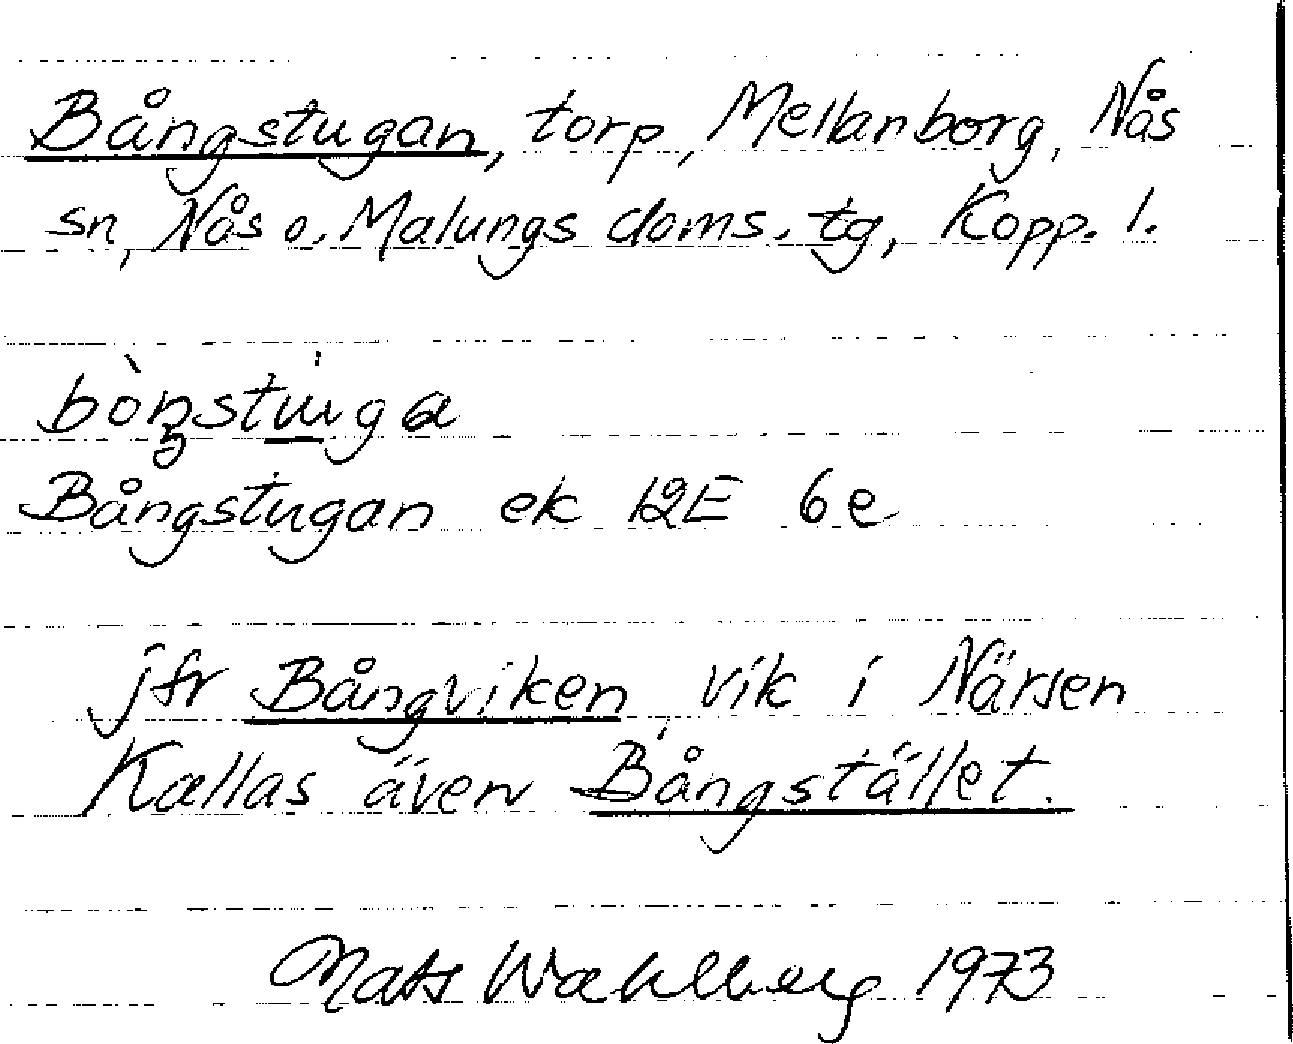 Bångstugan, torp, Mellanborg, Nås
sn, Nås o. Malungs doms. tg, Kopp. l.
Bångstugan ek 12E 6e
jfr Bångviken, vik i Närsen
Kallas även Bångstället.
Mats Wahlberg 1973